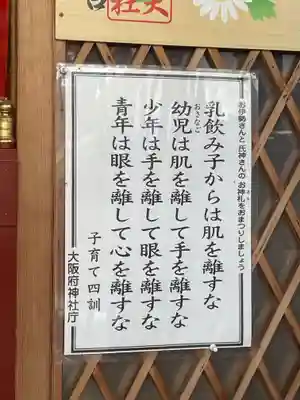 お伊勢さんと氏神さんのお神札をおまつりしましょう
乳飲み子からは肌を離すな
幼児は肌を離して手を離すな
おさなご
少年は手を離して眼を離すな
青年は眼を離して心を離すな
子育て四訓
大阪府神社庁